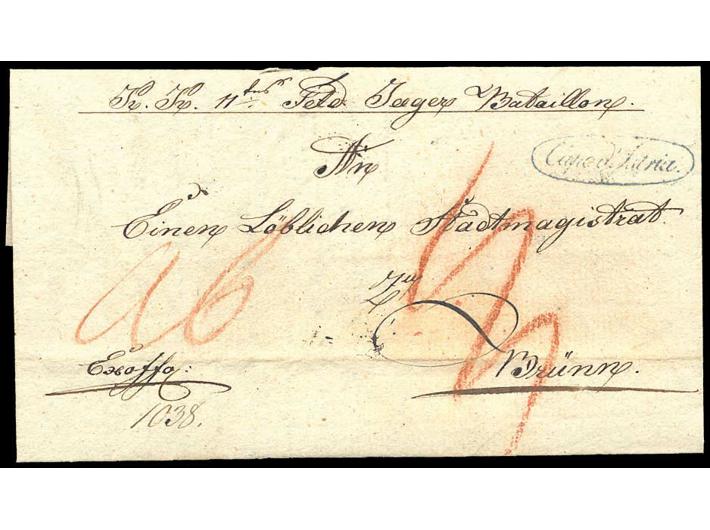 K. K. 11tes Feld Jäger Bataillon.
Capo d'Istria.
An
Einen Löblichen Stadtmagistrat
Zu
Brünn.
Exoffo:
1038.